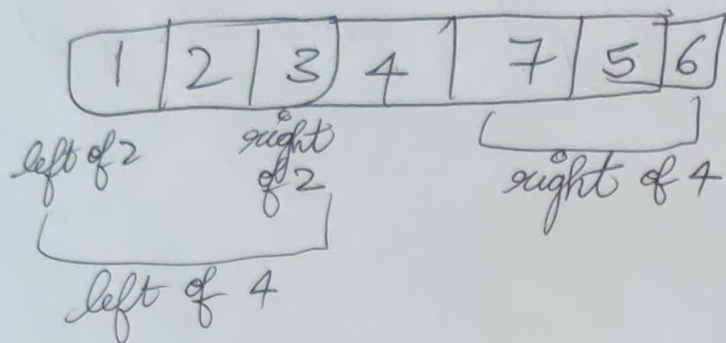 1 2 3 4 7 5 6
left of 2 right of 2 right of 4
left of 4